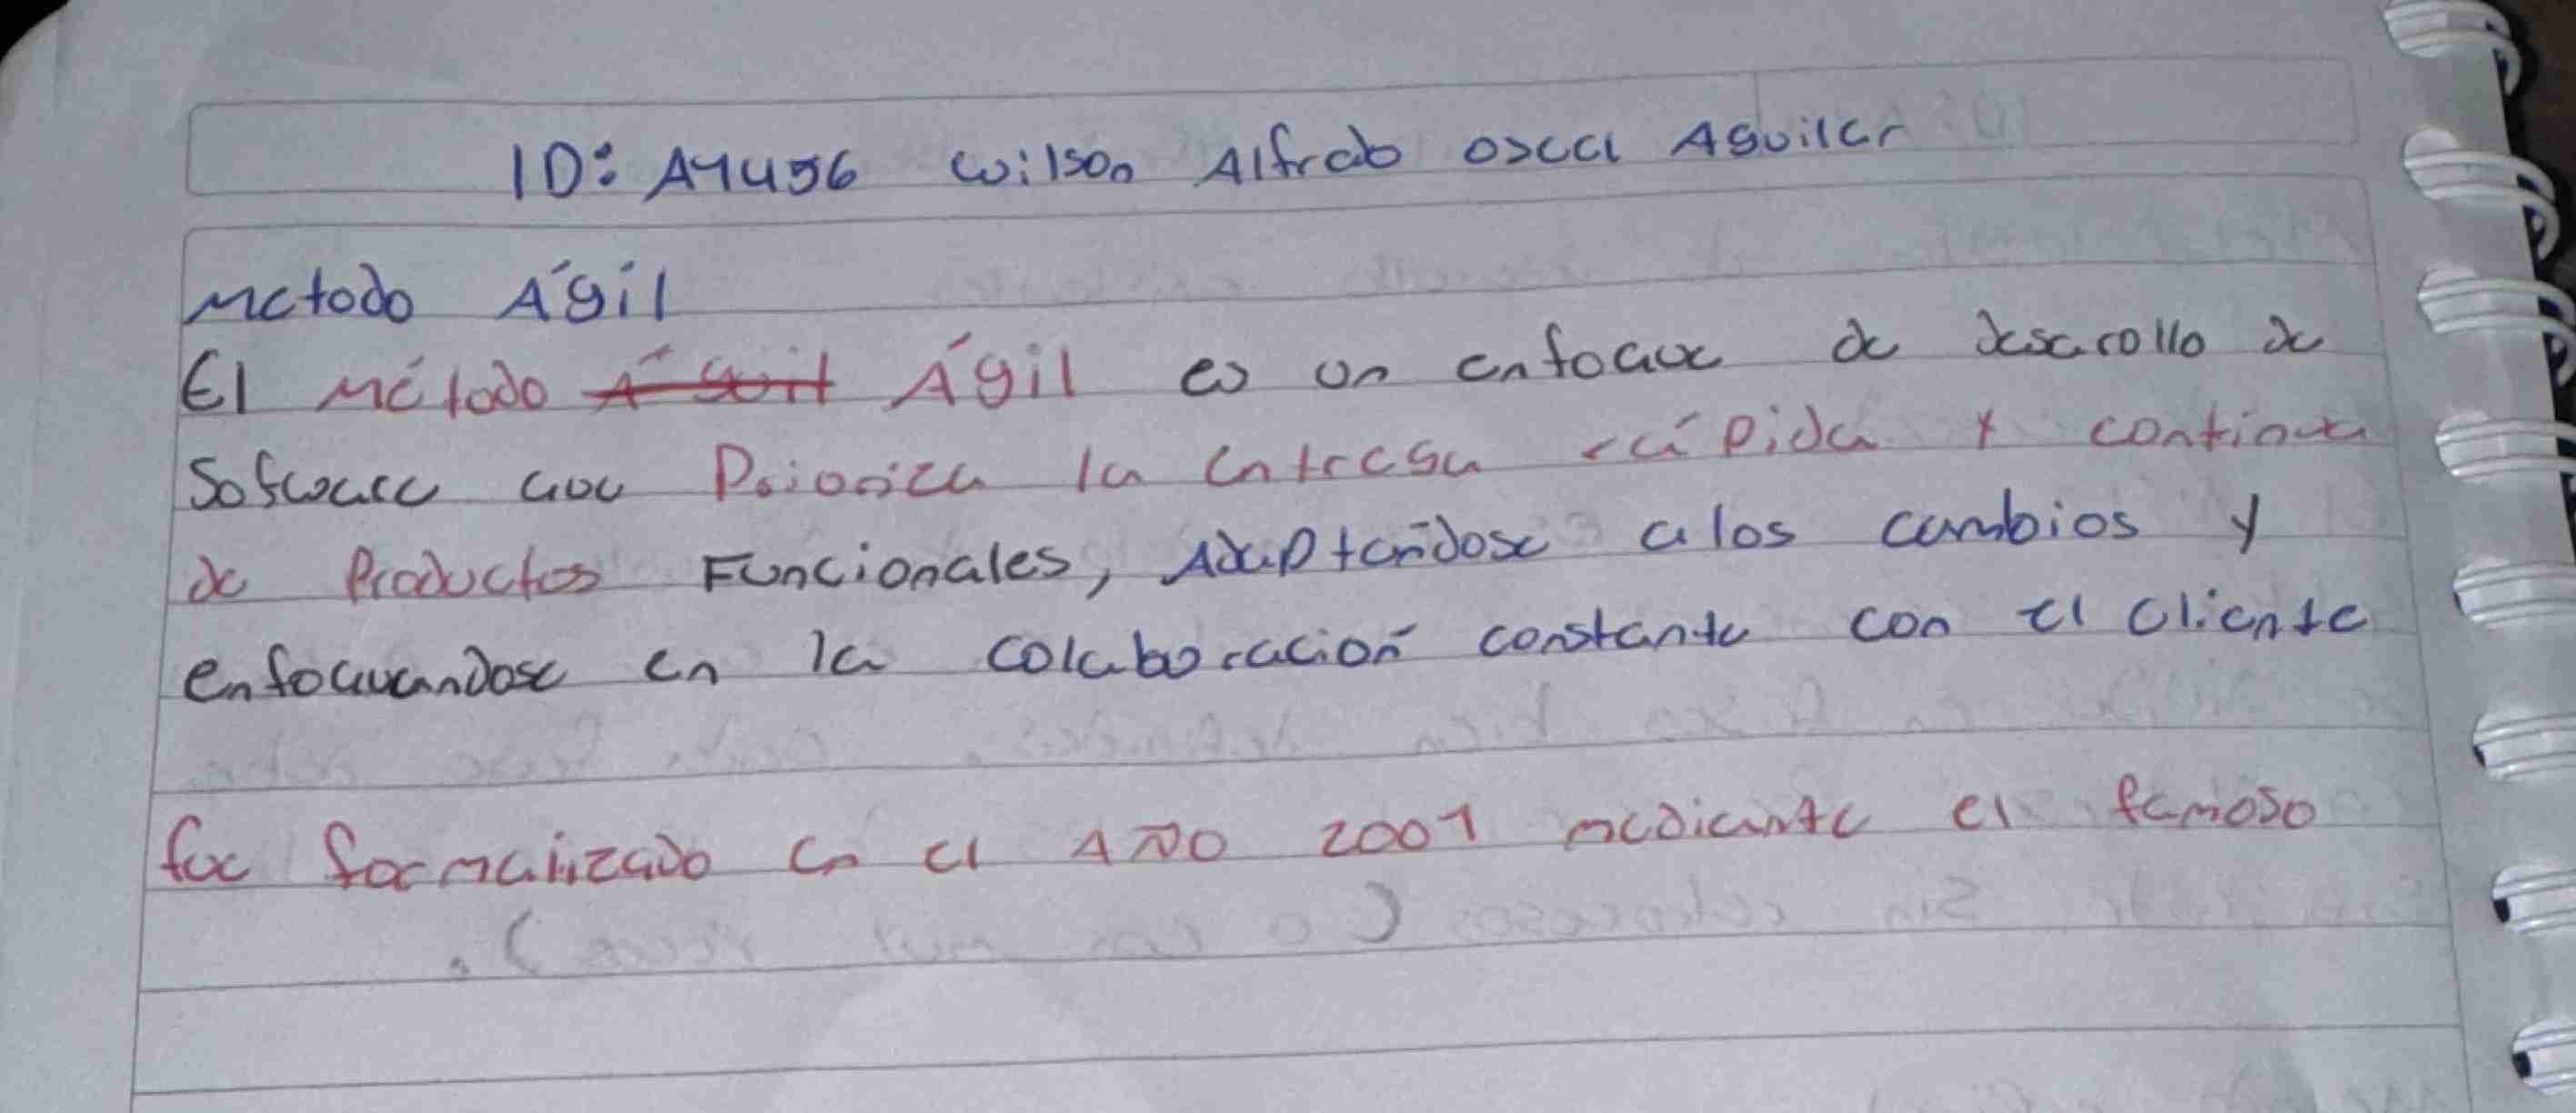 ID: A1456 Wilson Alfredo Aguilar
Metodo Ágil
El Método Ágil es un enfoque de desarollo de
Sofware que Prioriza la entrega rápida y continua
de Productos Funcionales, Adaptandose a los cambios y
enfoquandose en la colaboración constante con el cliente
fue formalizado en el AÑO 2001 mediante el famoso